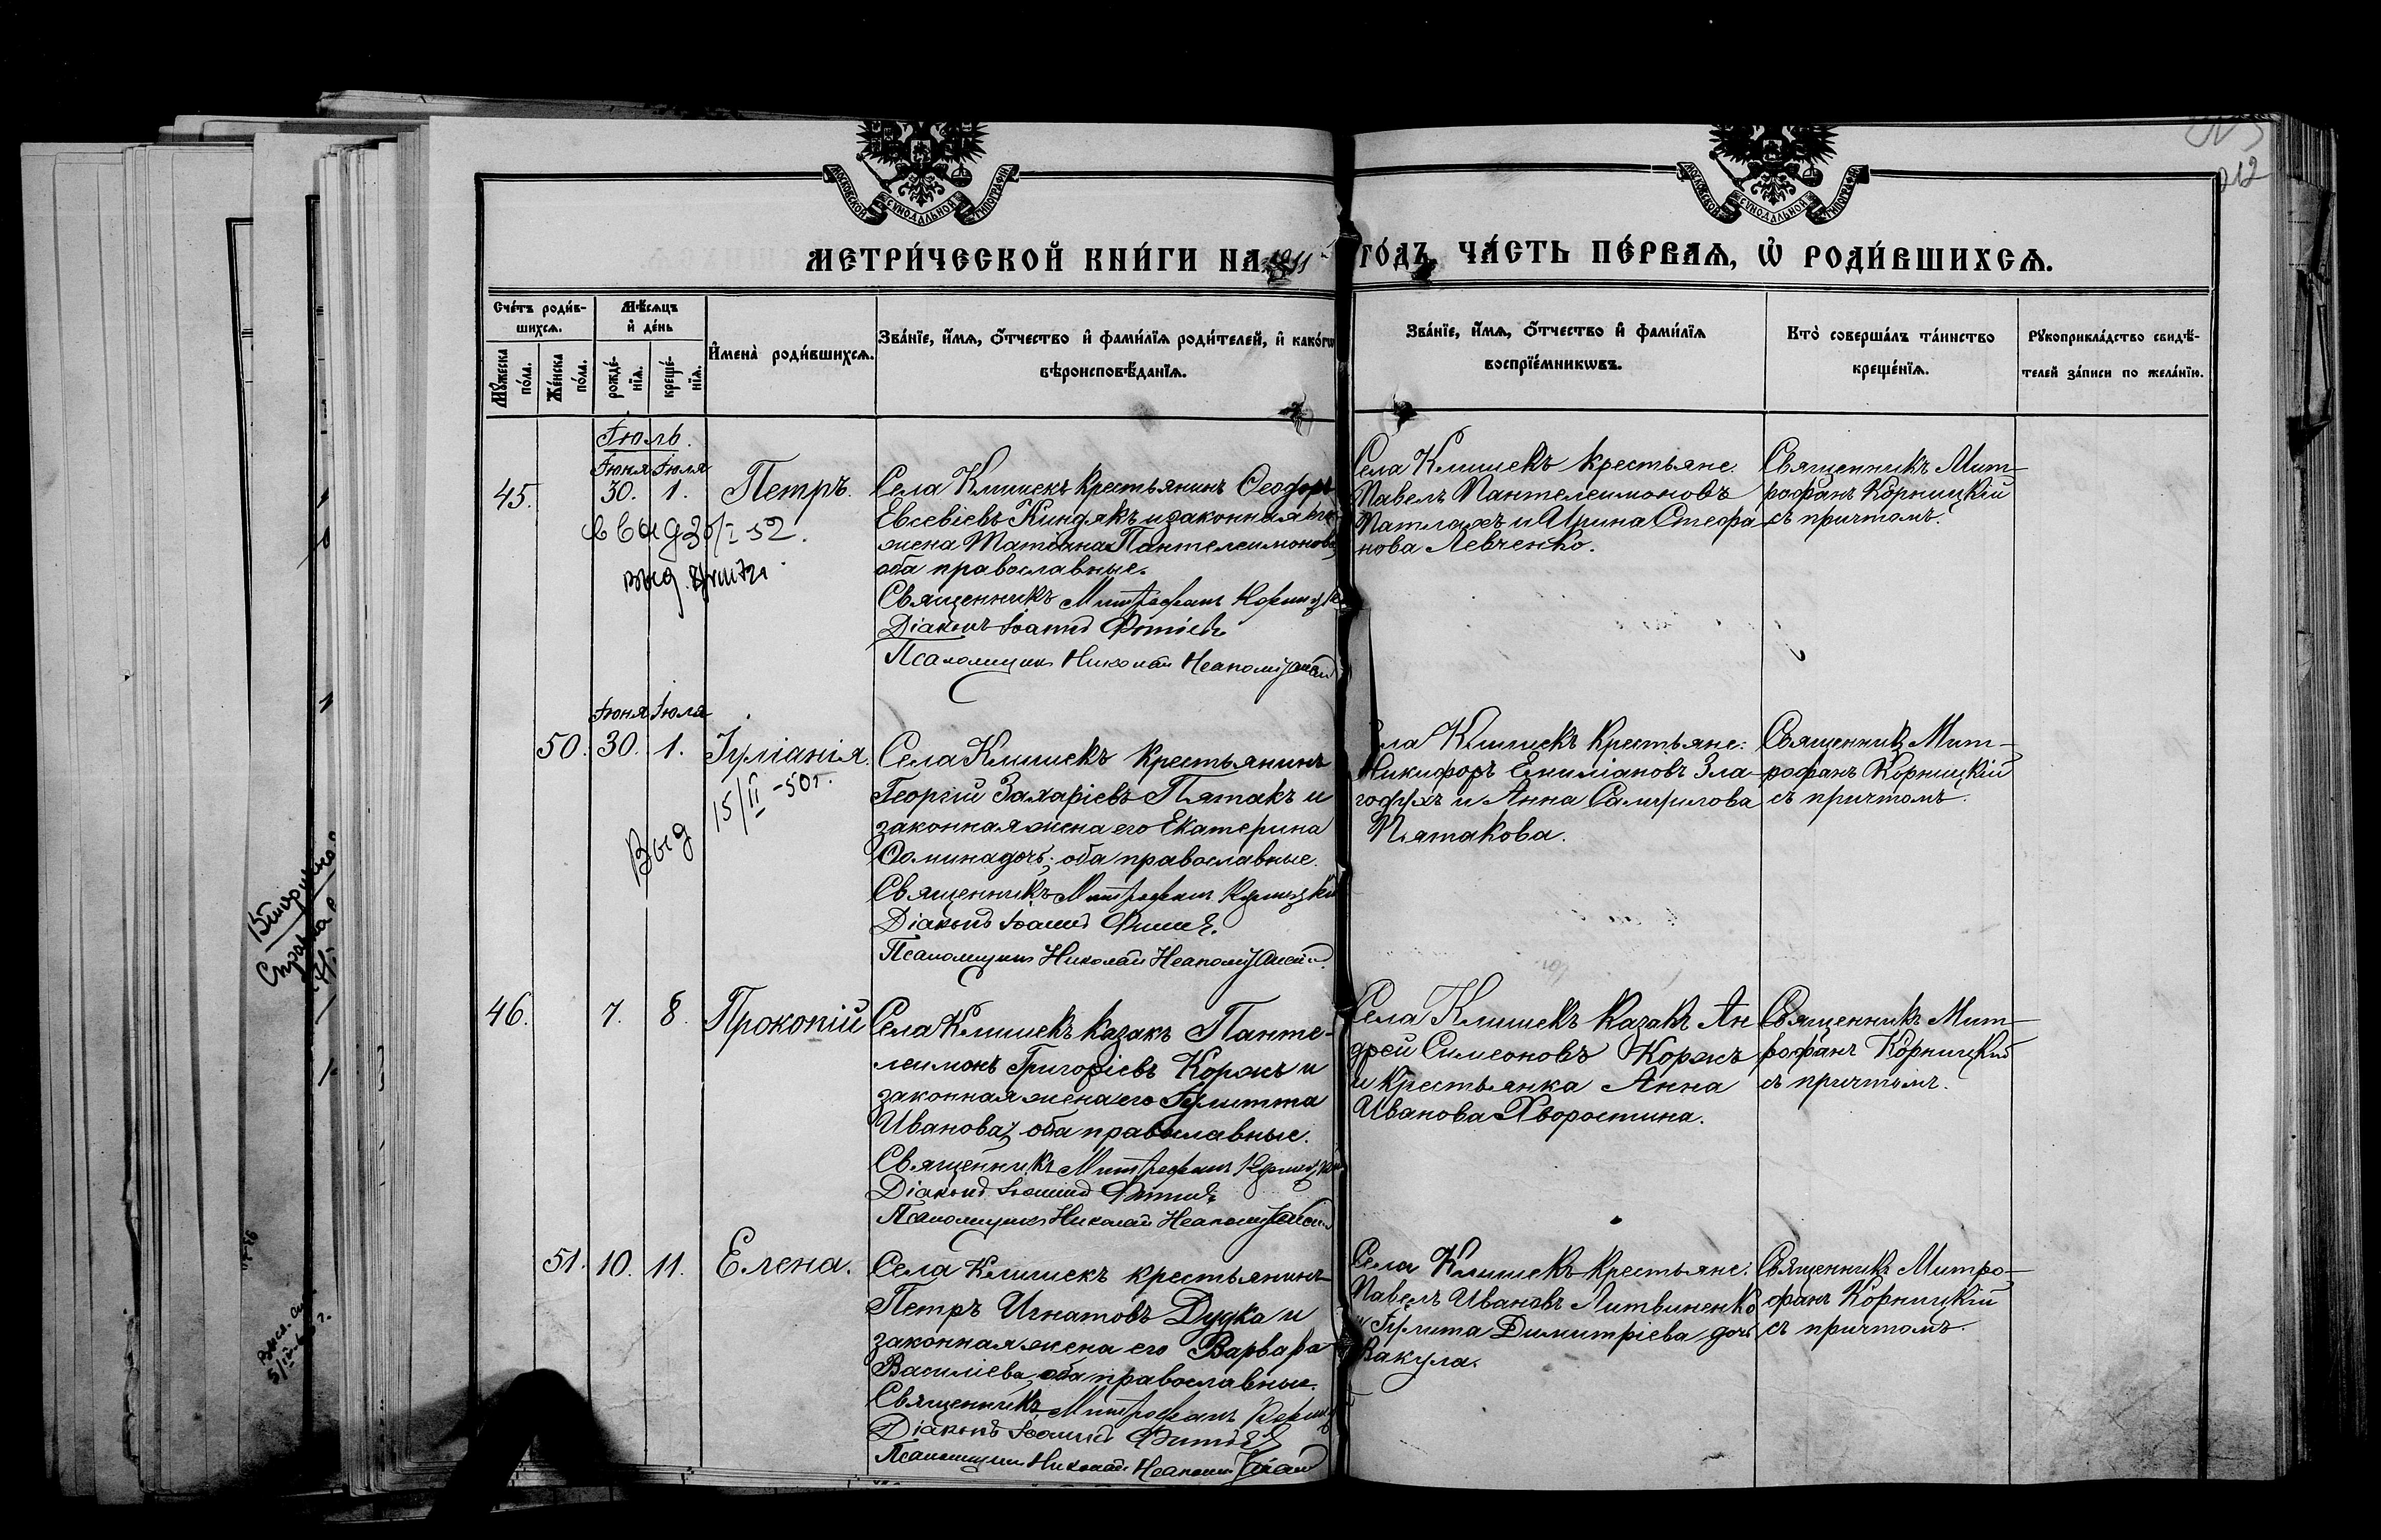 МОСКОВСКОЙ СѴНОДАЛЬНОЙ ТИПОГРАФІИ
МОСКОВСКОЙ СѴНОДАЛЬНОЙ ТИПОГРАФІИ
212
МЕТРИ́ЧЕСКОЙ КНИ́ГИ НА 1911 ГО́ДЪ, ЧА́СТЬ ПЕ́РВАѦ, Ѽ РОДИ́ВШИХСѦ.
Сче́тъ роди́в-
шихсѧ.
Мꙋ́жеска по́ла.
Же́нска по́ла.
Мѣ́сѧцъ
и҆ де́нь
рожде́-
нїѧ.
креще́-
нїѧ.
И҆мена̀ роди́вшихсѧ.
Зва́нїе, и҆́мѧ, ѻ҆́тчество и҆ фами́лїѧ роди́телей, и҆ како́гѡ
вѣроисповѣ́данїѧ.
Зва́нїе, и҆́мѧ, ѻ҆́тчество и҆ фами́лїѧ
воспрїе́мникѡвъ.
Кто̀ соверша́лъ та́инство
креще́нїѧ.
Рꙋкоприкла́дство свидѣ́-
телей за́писи по жела́нїю.
Іюль.
Іюня Іюля
45. 30. 1. Петръ.
Села Клишекъ крестьянинъ Ѳеодоръ
Евсевіевъ Киндякъ и законная его
жена Татіана Пантелеимонова,
оба православные.
Священникъ Митрофанъ Корницкій
Діаконъ Іоаннъ
Псаломщикъ Николай
Села Клишекъ крестьяне:
Павелъ Пантелеимоновъ
Патлахъ и Ирина Стефа-
нова Левченко.
Священникъ Мит-
рофанъ Корницкій
съ причтомъ.
Іюня Іюля
50. 30. 1. Іуліанія.
Выд 15/II-50г.
Села Клишекъ крестьянинъ
Георгій Захаріевъ Пятакъ и
законная жена его Екатерина
Ѳомина дочь; оба православные.
Священникъ Митрофанъ Корницкій
Діаконъ Іоаннъ
Псаломщикъ Николай
Села Клишекъ крестьяне:
Никифоръ Емиліановъ Зла-
годухъ и Анна Самуилова
Пятакова.
Священникъ Мит-
рофанъ Корницкій
съ причтомъ.
46. 7. 8. Прокопій
Села Клишекъ казакъ Панте-
леимонъ Григоріевъ Коржъ и
законная жена его Іулитта
Иванова; оба православные.
Священникъ Митрофанъ Корницкій
Діаконъ Іоаннъ
Псаломщикъ Николай
Села Клишекъ казакъ Ан
дрей Симеоновъ Коржъ
и крестьянка Анна
Иванова Хворостина.
Священникъ Мит-
рофанъ Корницкій
съ причтомъ.
51. 10. 11. Елена.
Села Клишекъ крестьянинъ
Петръ Игнатовъ Дудка и
законная жена его Варвара
Василіева, оба православные.
Священникъ Митрофанъ
Діаконъ Іоаннъ
Псаломщикъ Николай
Села Клишекъ крестьяне:
Павелъ Ивановъ Литвиненко
и Іулита Димитріева дочь
Вакула.
Священникъ Митро-
фанъ Корницкій
съ причтомъ.